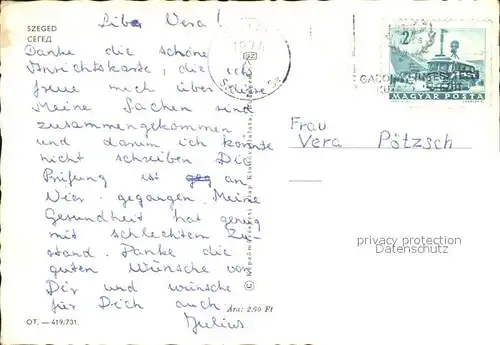 SZEGED
СЕГЕД
Liebe Vera!
Danke die schöne
Ansichtskarte, die ich
freue mich über diese
Meine Sachen sind
zusammengekommen
und darum ich konnte
nicht schreiben Die
Prüfung ist geg an
Vier gegangen. Meine
Gesundheit hat genug
mit schlechtem Zu-
stand. Danke die
guten Wünsche von
Dir und wünsche
für Dich auch
Julius
Ára: 2.60 Ft
OT. — 419/731.
© Képzőművészeti Alap Kiadóvállalata
1974
2
MAGYAR POSTA
Frau
Vera Pötzsch
privacy protection
Datenschutz